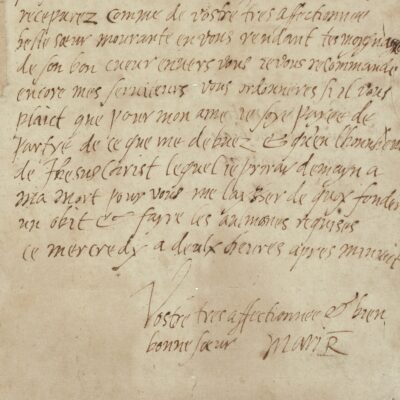 recepvrez comme de vostre tres affectionnee
belle sœur mourante en vous rendant tesmoygnasge
de son bon cueur envers vous Je vous recommande
encore mes serviteurs vous ordonneres si il vous
plaict que pour mon ame je soye payee de
partye de ce que me debvez & qu'en l'honneur
de Jhesus Christ lequel je priray demayn a
ma mort pour vous me laisser de quoy fonder
un obit & fayre les aulmones requises
ce mercredy a deulx heures apres minuit
Vostre tres affectionnee & bien
bonne sœur Mari R